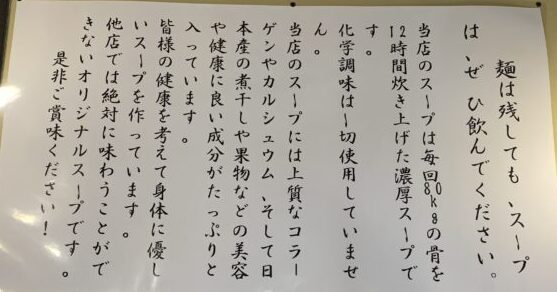 麺は残しても、スープ
は、ぜひ飲んでください。
当店のスープは毎回80kgの骨を
12時間炊き上げた濃厚スープで
す。
化学調味は一切使用していませ
ん。
当店のスープには上質なコラー
ゲンやカルシュウム、そして日
本産の煮干しや果物などの美容
や健康に良い成分がたっぷりと
入っています。
皆様の健康を考えて身体に優し
いスープを作っています。
他店では絶対に味わうことがで
きないオリジナルスープです。
是非ご賞味ください！